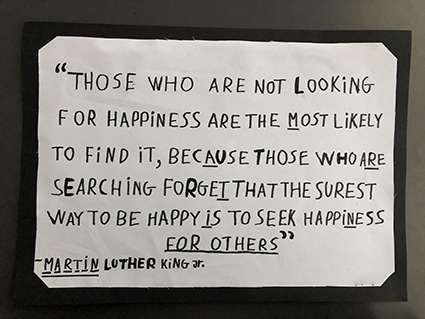 “THOSE WHO ARE NOT LOOKiNG
FOR HAPPINESS ARE THE MOST LIKELY
TO FiND IT, BECAUSE THOSE WHO ARE
SEARCHING FORGET THAT THE SUREST
WAY TO BE HAPPY iS TO SEEK HAPPINESS
FOR OTHERS”
-MARTiN LUTHER KiNG Jr.